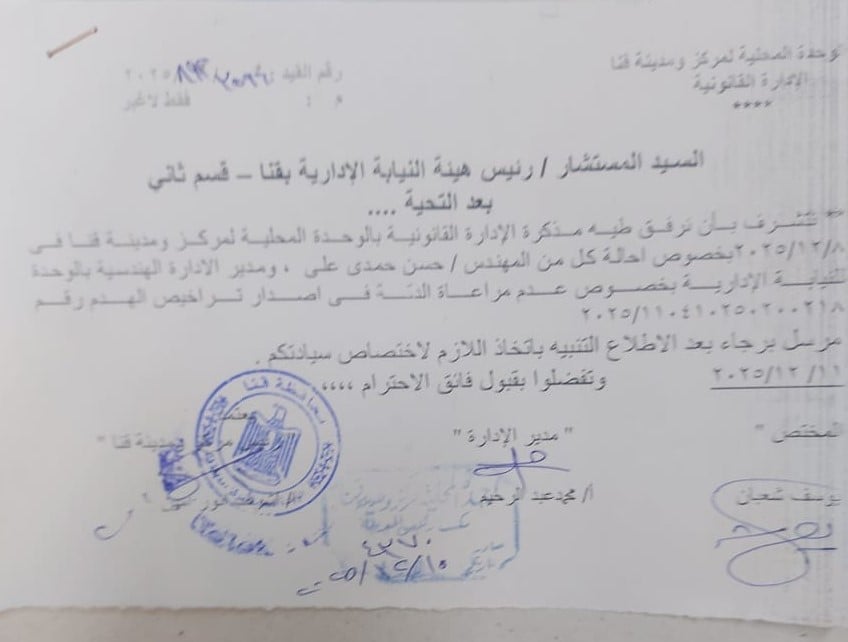 لوحدة المحلية لمركز ومدينة قنا
الإدارة القانونية
****
رقم القيد : ٢٠٢٥/
م : فقط لاغير
السيد المستشار / رئيس هيئة النيابة الإدارية بقنا – قسم ثاني
بعد التحية ....
** نتشرف بأن نرفق طيه مذكرة الإدارة القانونية بالوحدة المحلية لمركز ومدينة قنا فى
٢٠٢٥/١٢/٨ بخصوص احالة كل من المهندس / حسن حمدى على ، ومدير الادارة الهندسية بالوحدة
للنيابة الإدارية بخصوص عدم مراعاة الدقة فى اصدار تراخيص الهدم رقم
٢٠٢٥/١١٠٤١٠٢٥٠٢٠٠٢١٨
مرسل برجاء بعد الاطلاع التنبيه باتخاذ اللازم لاختصاص سيادتكم .
وتفضلوا بقبول فائق الاحترام ،،،،
٢٠٢٥/١٢/١١
المختص "
" مدير الإدارة "
يعتمد
ومدينة قنا "
يوسف شعبان
أ/ محمد عبد الرحيم
محافظة قنا